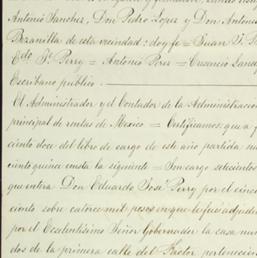 Antonio Sanchez, Don Pedro Lopez y Don Antonio
Bezanilla de esta vecindad: doy fe = Juan
Edo. Jé. Perry = Antonio Perez =
Escribano publico.
El Administrador y el Contador de la Administracion
principal de rentas de Mexico = Certificamos: que a
ciento doce del libro de cargo de este año partida
ciento quince consta la siguiente = Son cargo setecientos
que entera Don Eduardo José Perry por el cinco
ciento sobre catorce mil pesos en que le fué adjudi
por el Ecselentisimo Señor Gobernador la casa num
dos de la primera calle del Factor perteneci